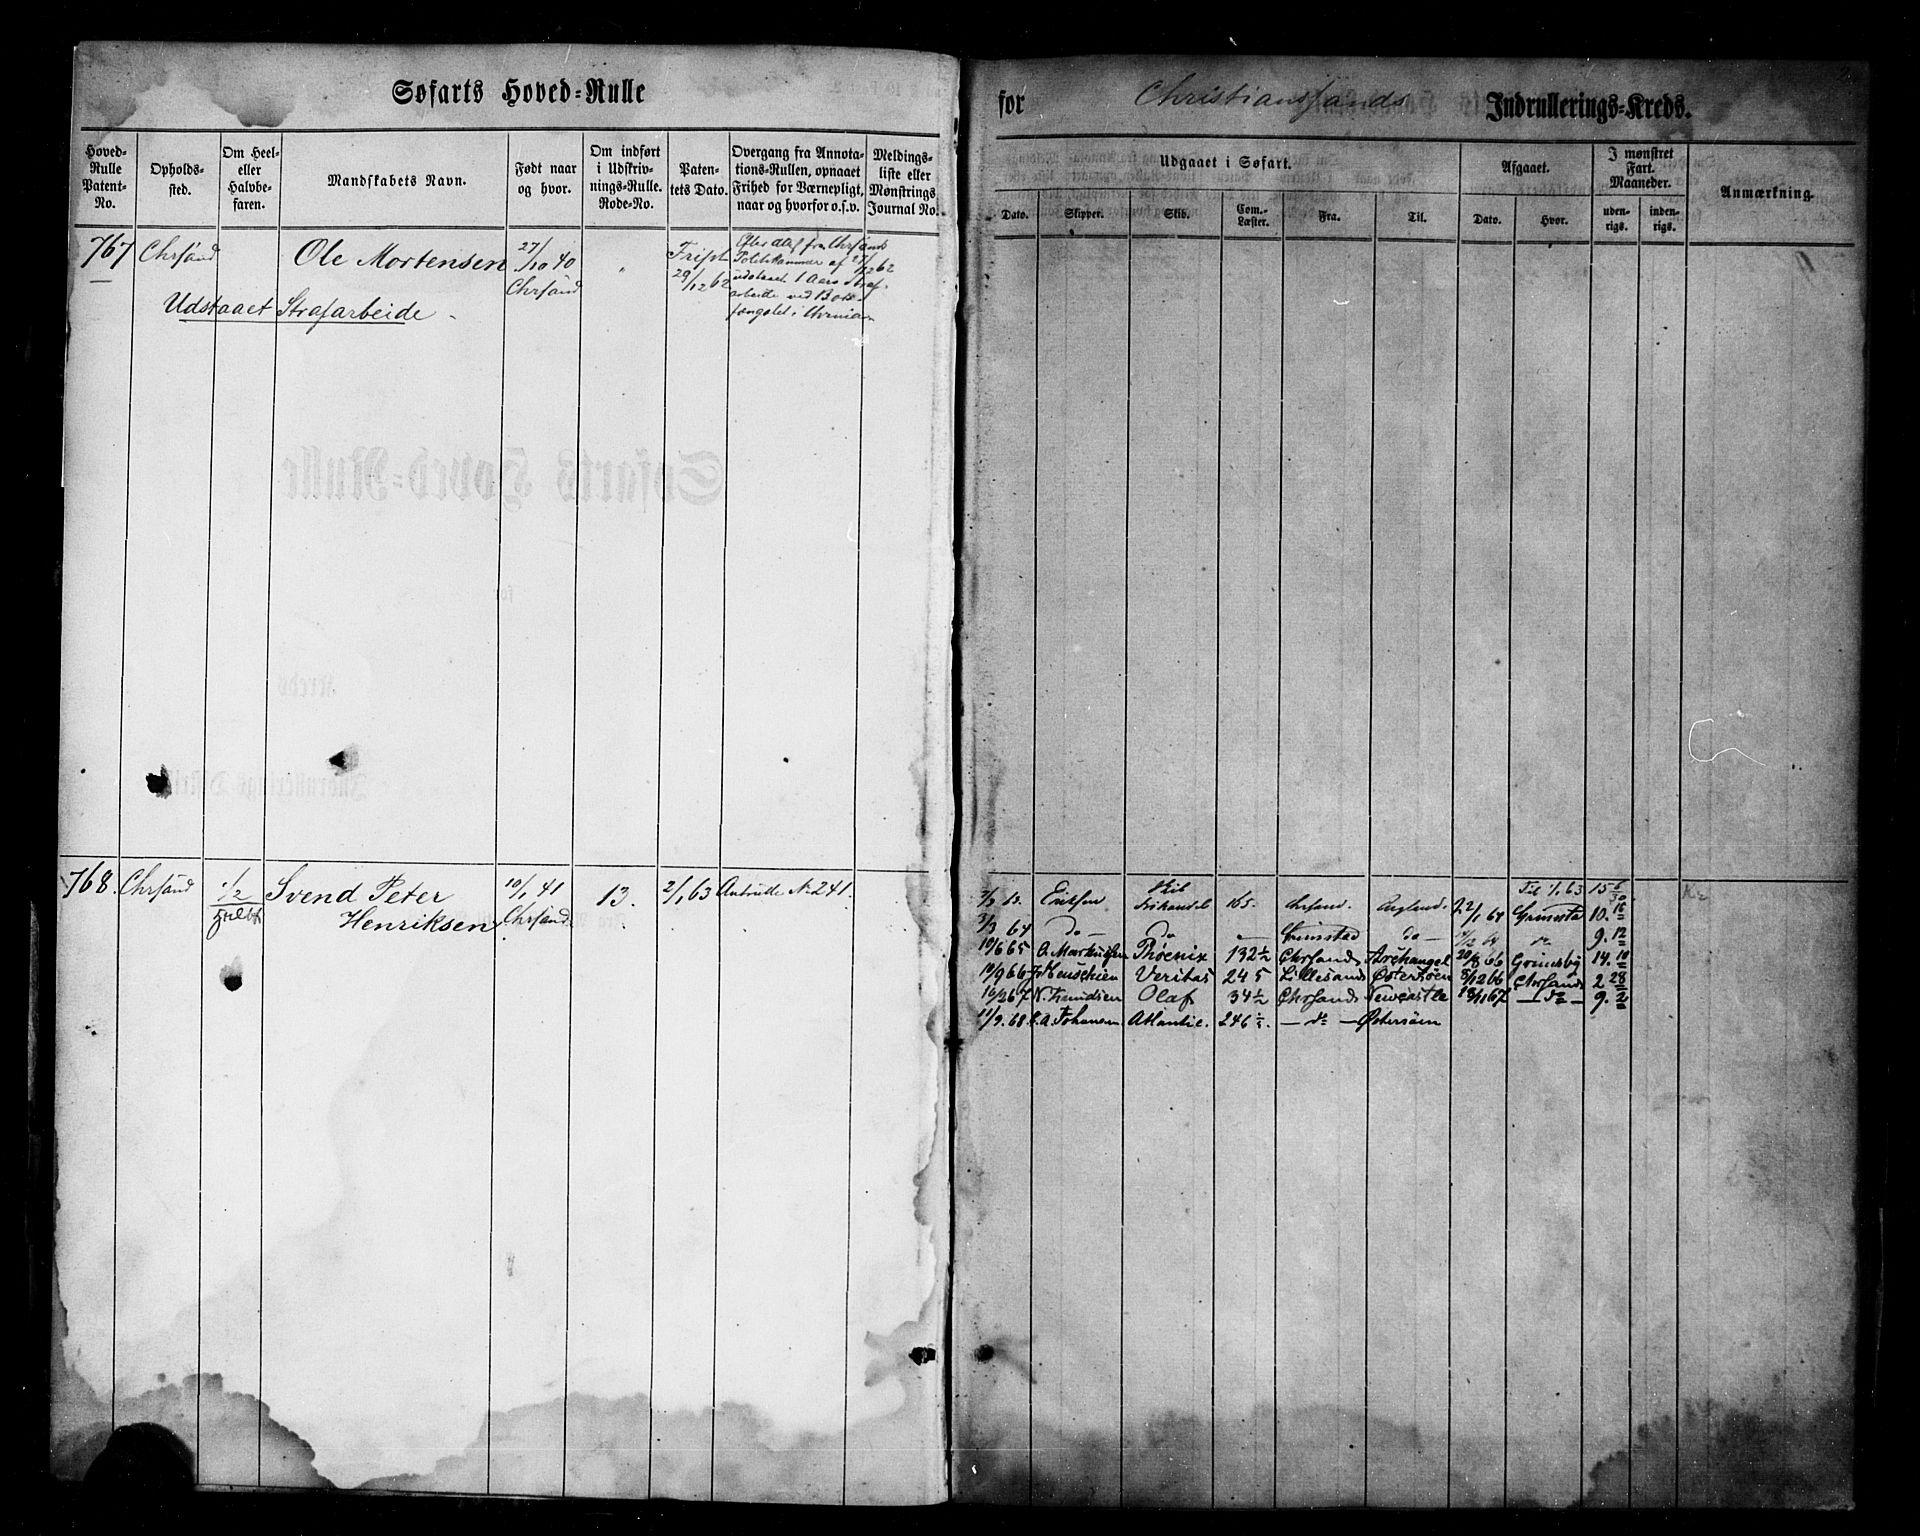 Søfarts Hoved-Rulle
for Christianssands Indrullerings-Kreds.
Hoved-Rulle Patent-No.
Opholds-sted.
Om Heel- eller Halvbe-faren.
Mandskabets Navn.
Født naar og hvor.
Om indført i Udskriv-nings-Rulle. Rode-No.
Paten-tets Dato.
Overgang fra Annota-tions-Rullen, opnaaet Frihed for Værnepligt, naar og hvorfor o.s.v.
Meldings-liste eller Mønstrings Journal No.
Udgaaet i Søfart.
Afgaaet.
I mønstret Fart. Maaneder.
Anmærkning.
Dato. Skipper. Skib. Com.-Læster. Fra. Til. Dato. Hvor. uden-rigs. inden-rigs.
767 Chrsand Ole Mortensen 27/10 40 Chrsand " 29/12 62
fra Chrsands
Politikammer af 27/12 62
udstaaet 1 Aars Straf-
arbeide ved Bods-
fængslet i Chrnia
Udstaaet Strafarbeide
768. Chrsand 1/2 Svend Peter Henriksen 10/1 41 Chrsand 13. 2/1 63 Antrulle No 241.
Til 1/1 63 15
Eriksen 165. Chrsand. England. 22/1 64 Grimstad 10. 16
3/3 64 do do Grimstad do 9. 12
10/6 65 O. Markussen Phoenix 132 1/2 Chrsand Archangel 20/8 66 Grimsby 14. 10
10/9 66 Veritas 245 Lillesand Østersøen 8/12 66 Chrsand 2 28
16/2 67 N. Knudsen Olaf 34 1/2 Chrsand Newcastle 18/11 67 do 9. 2
11/9. 68. Atlantic. 246 1/2. do Østersøen